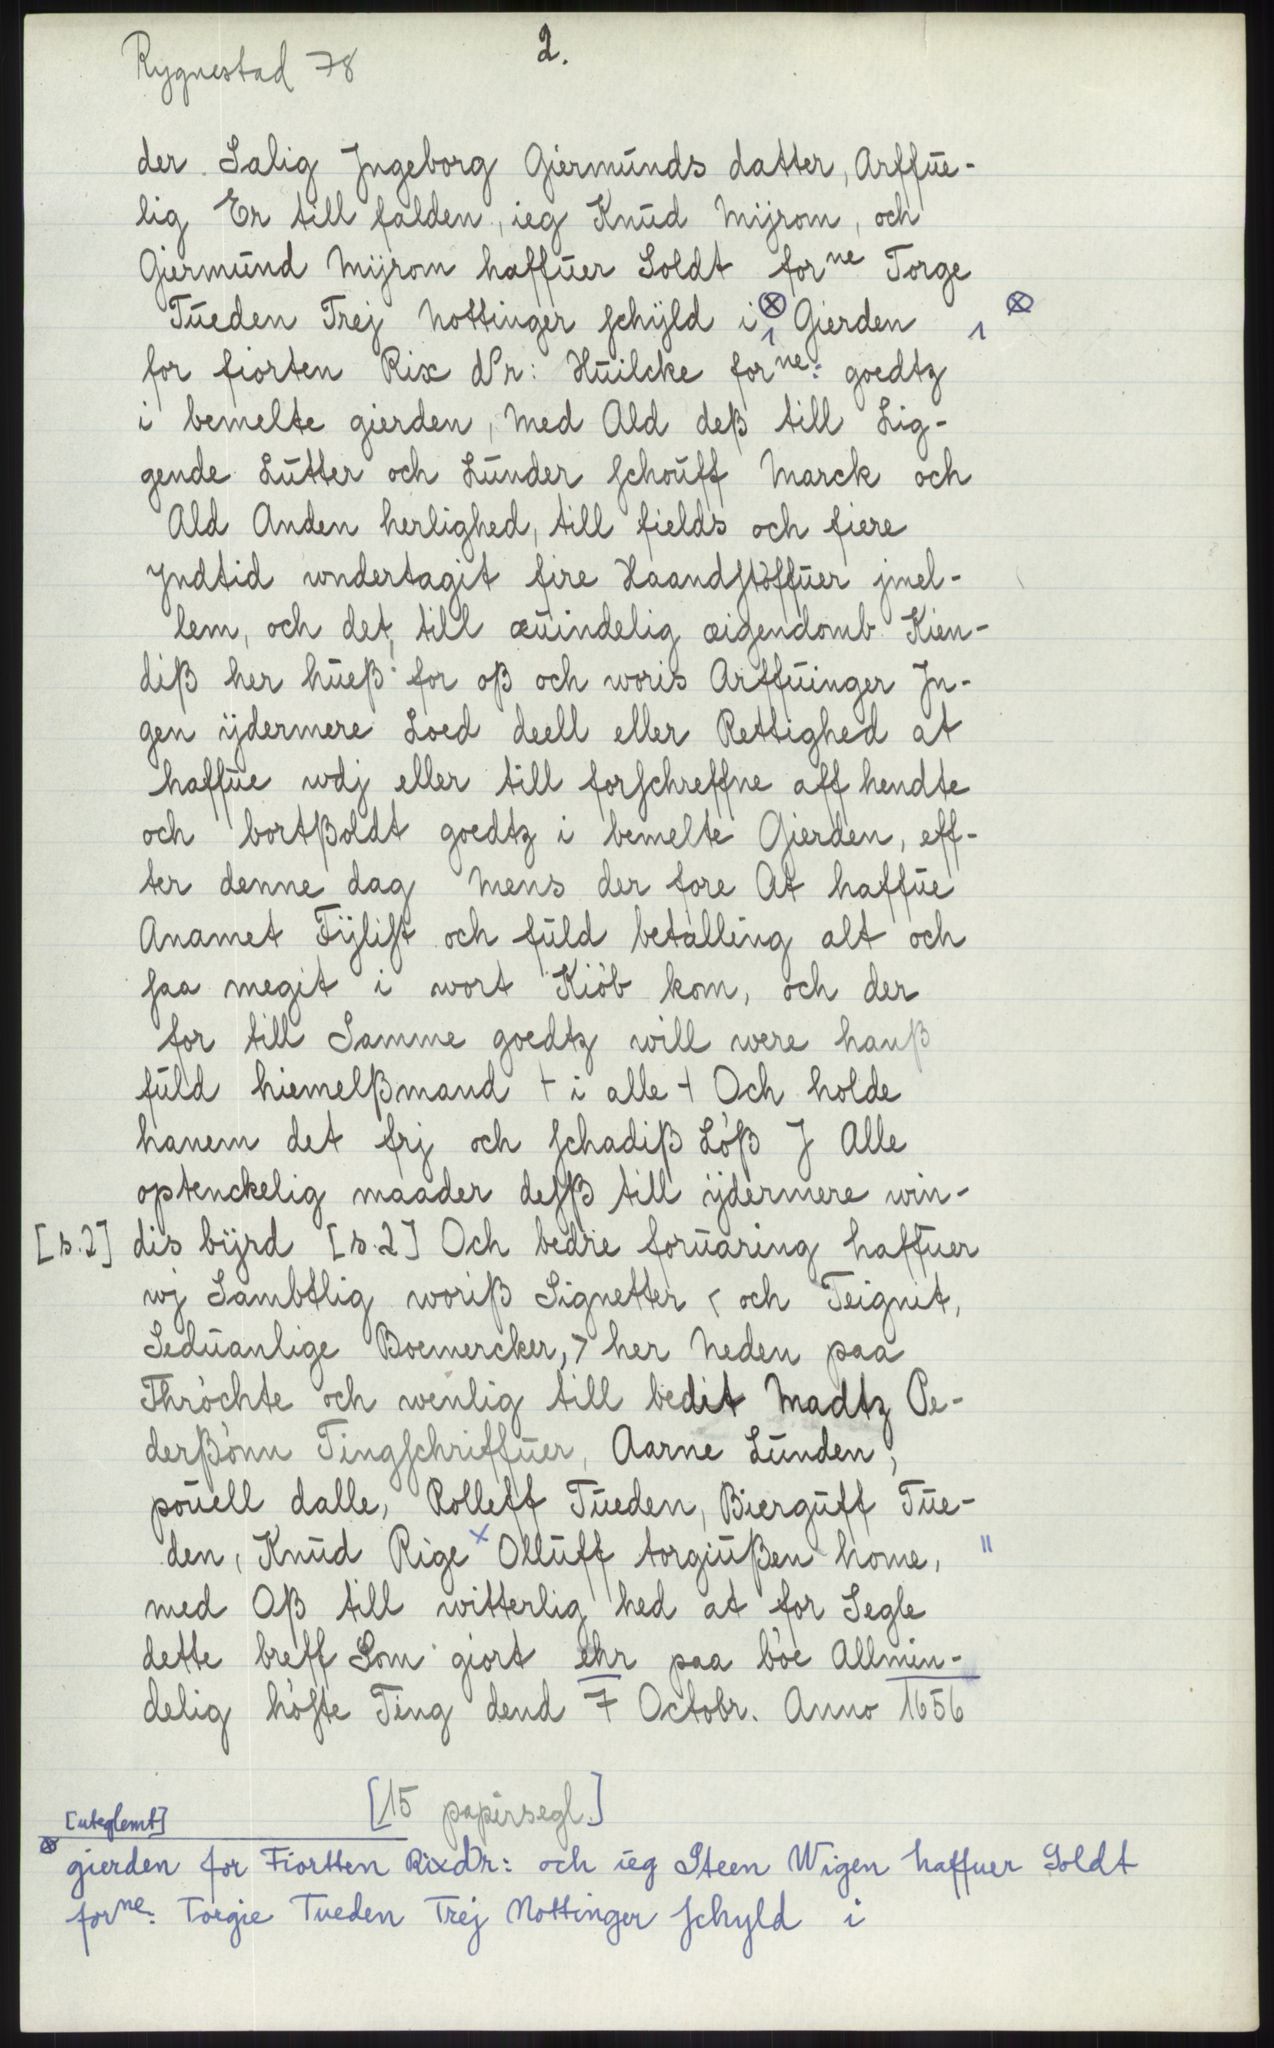 Rygnestad 78
2.
der Salig Jngeborg Giermunds datter, Arffue-
lig Er till falden, ieg Knud Mÿrom, och
Giermund Mÿrom haffuer Soldt forne Torge
Tueden Trej Nottinger schÿld i ⊗ Gierden 1 ⊗
for fiorten Rix dlr: Huilcke forne: goedtz
i bemelte gierden, Med Ald deß till Lig-
gende Lutter och Lunder schouff Marck och
Ald Anden herlighed, till fields och fiere
Jndtid wndertagit fire Haandstöffuer jmel-
lem, och det till æuindelig æigendomb Kien-
diß her hueß for oß och woris Arffuinger Jn-
gen ÿdermere Loed deell eller Rettighed at
haffue wdj eller till forschreffne aff hendte
och bortßoldt goedtz i bemelte Gierden, eff-
ter denne dag Mens der fore At haffue
Anamet Fÿlist och fuld betalling alt och
saa megit i wort Kiöb kom, och der
for till Samme goedtz will were hanß
fuld hiemelßmand + i alle + Och holde
hanem det frj och schadiß Löß J Alle
optenckelig maader desß till ÿdermere win-
[s.2] dis bÿrd [s.2] Och bedre foruaring haffuer
wj Sambtlig woriß Signetter < och Teignit,
Seduanlige Boemercker, > her Neden paa
Thröchte och wenlig till bedit Madtz Pe-
derßönn Tingschriffuer, Aarne Lunden,
pouell dalle, Rolleff Tueden, Bierguff Tue-
den, Knud Rige x Olluff torgiußen home, "
med Oß till witterlig hed at for Segle
dette breff Som giort ehr paa böe Allmin-
delig höste Ting dend 7 Octobr. Anno 1656
[15 papirsegl.]
[uteglemt]
⊗ gierden for Fiortten Rixdlr: och ieg Steen Wigen haffuer Soldt
forne: Torgie Tueden Trej Nottinger schyld i